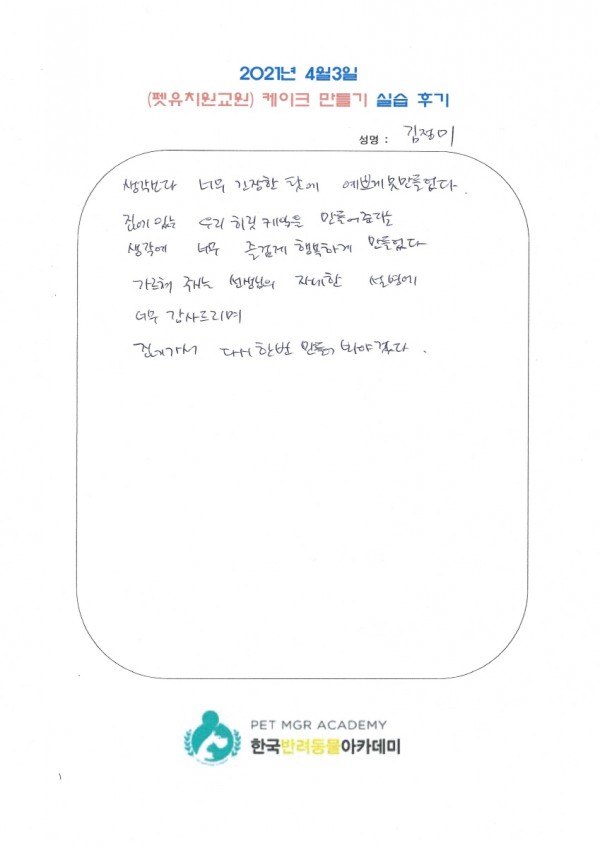 2021년 4월3일
(펫유치원교원) 케이크 만들기 실습 후기
성명 : 김정미
생각보다 너무 긴장한 탓에 예쁘게 못만들었다.
집에 있는 우리 히릿 케잌을 만들어준다는
생각에 너무 즐겁게 행복하게 만들었다
가르쳐 주시는 선생님의 자세한 설명에
너무 감사드리며
집에가서 다시한번 만들어 봐야겠다.
PET MGR ACADEMY
한국반려동물아카데미